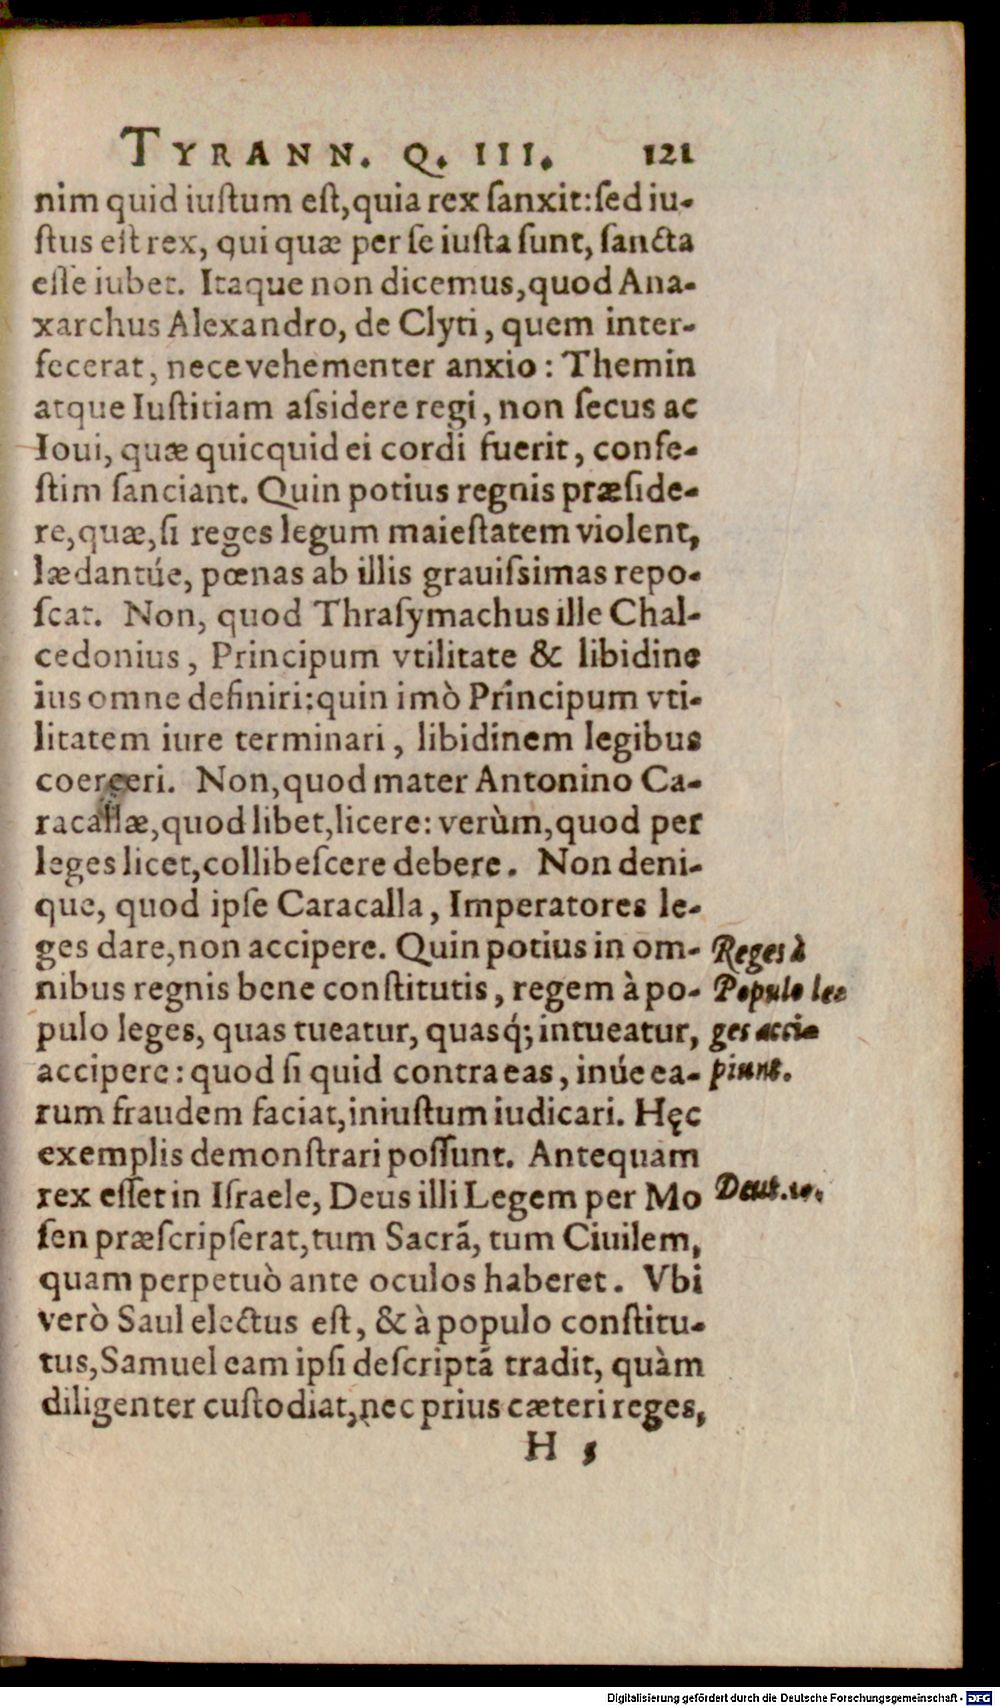 TYRANN. Q. III. 121
nim quid iustum est, quia rex sanxit: sed iu-
stus est rex, qui quæ per se iusta sunt, sancta
esse iubet. Itaque non dicemus, quod Ana-
xarchus Alexandro, de Clyti, quem inter-
fecerat, nece vehementer anxio: Themin
atque Iustitiam assidere regi, non secus ac
Ioui, quæ quicquid ei cordi fuerit, confe-
stim sanciant. Quin potius regnis præside-
re, quæ, si reges legum maiestatem violent,
lædantúe, pœnas ab illis grauissimas repo-
scat. Non, quod Thrasymachus ille Chal-
cedonius, Principum vtilitate & libidine
ius omne definiri: quin imò Principum vti-
litatem iure terminari, libidinem legibus
coerceri. Non, quod mater Antonino Ca-
racallæ, quod libet, licere: verùm, quod per
leges licet, collibescere debere. Non deni-
que, quod ipse Caracalla, Imperatores le-
ges dare, non accipere. Quin potius in om-
nibus regnis bene constitutis, regem à po-
pulo leges, quas tueatur, quasq́; intueatur,
accipere: quod si quid contra eas, inúe ea-
rum fraudem faciat, iniustum iudicari. Hęc
exemplis demonstrari possunt. Antequam
rex esset in Israele, Deus illi Legem per Mo
sen præscripserat, tum Sacrã, tum Ciuilem,
quam perpetuò ante oculos haberet. Vbi
verò Saul electus est, & à populo constitu-
tus, Samuel eam ipsi descriptã tradit, quàm
diligenter custodiat, nec prius cæteri reges,
H 5
Reges à
Populo le-
ges acci-
piunt.
Deut.
Digitalisierung gefördert durch die Deutsche Forschungsgemeinschaft - DFG